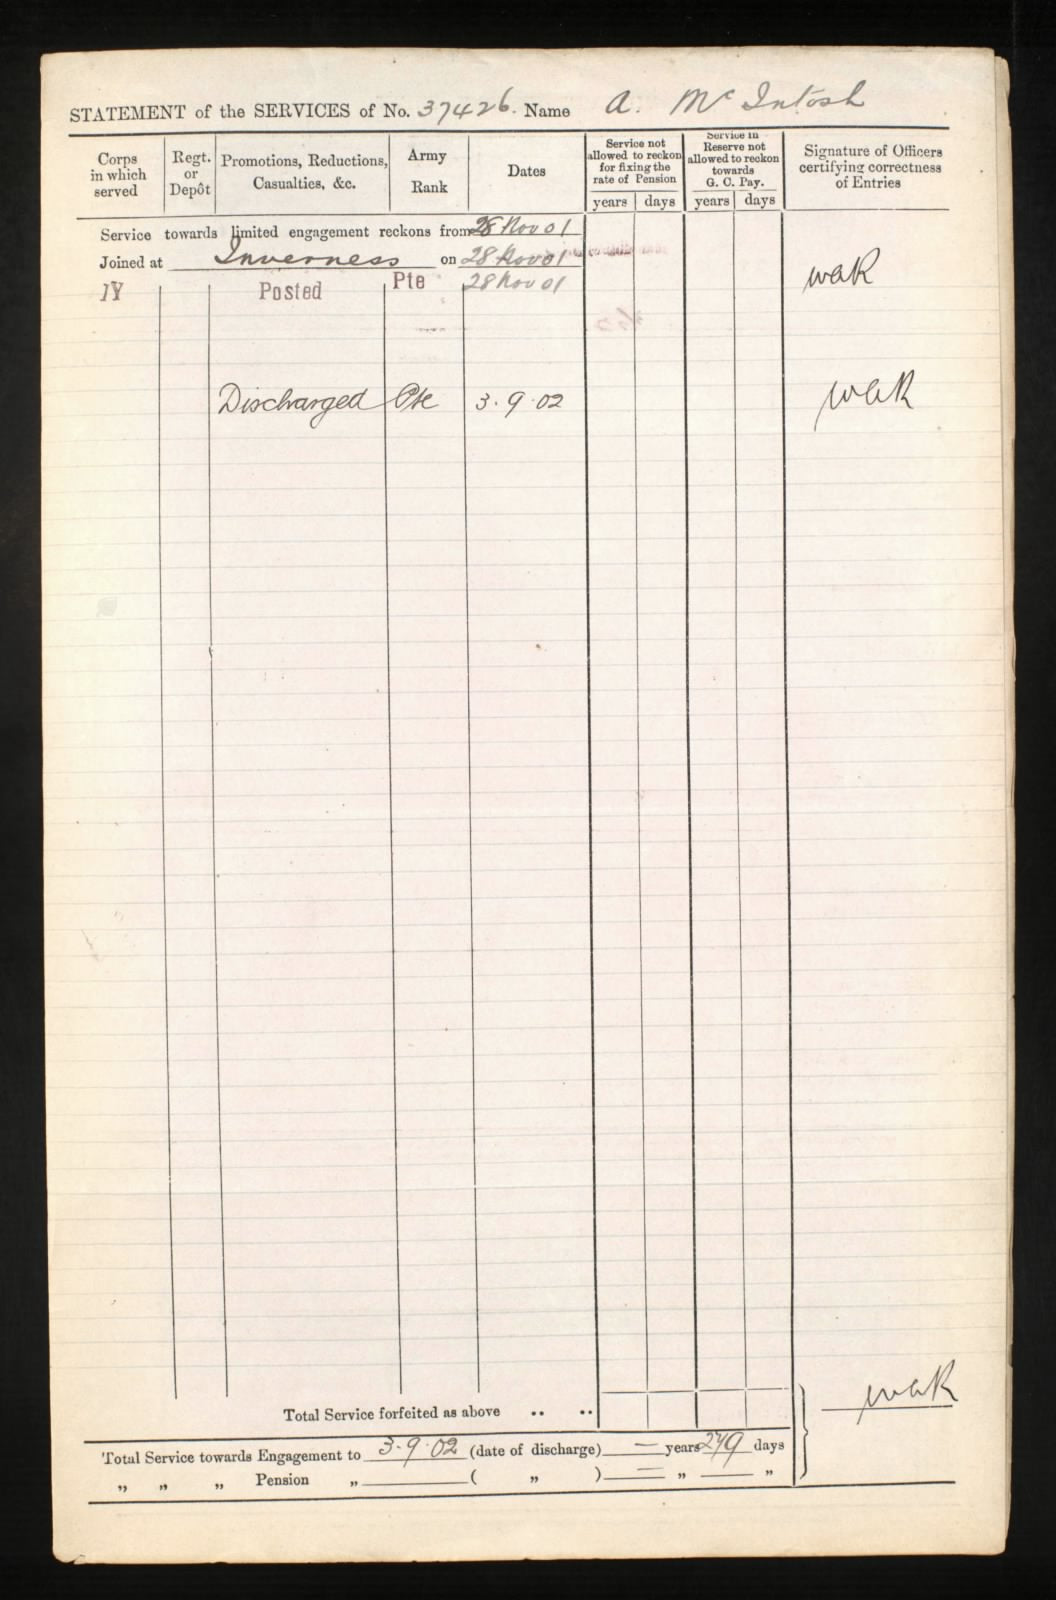 STATEMENT of the SERVICES of No. 37426. Name A. McIntosh
Corps in which served
Regt. or Depôt
Promotions, Reductions, Casualties, &c.
Army Rank
Dates
Service not allowed to reckon for fixing the rate of Pension
years days
Service in Reserve not allowed to reckon towards G. C. Pay.
years days
Signature of Officers certifying correctness of Entries
Service towards limited engagement reckons from 28 Nov 01
Joined at Inverness on 28 Nov 01
IY Posted Pte 28 Nov 01
Discharged Pte 3.9.02
Total Service forfeited as above .. ..
Total Service towards Engagement to 3.9.02 (date of discharge) — years days
„ „ „ Pension „ ( „ ) — „ — „